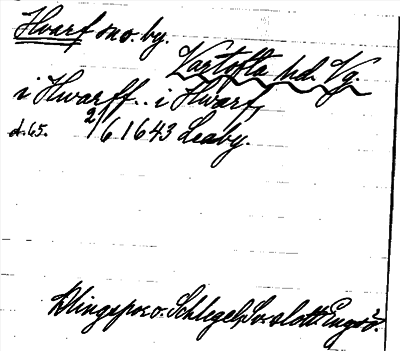 Hvarf sn o. by.
Vartofta hd. Vg.
i Hwarff.. i Hwarf,
d. 65. 2/6 1643 Leaby.
Klingspor o. Schlegel, Sv. slott. Engsö.